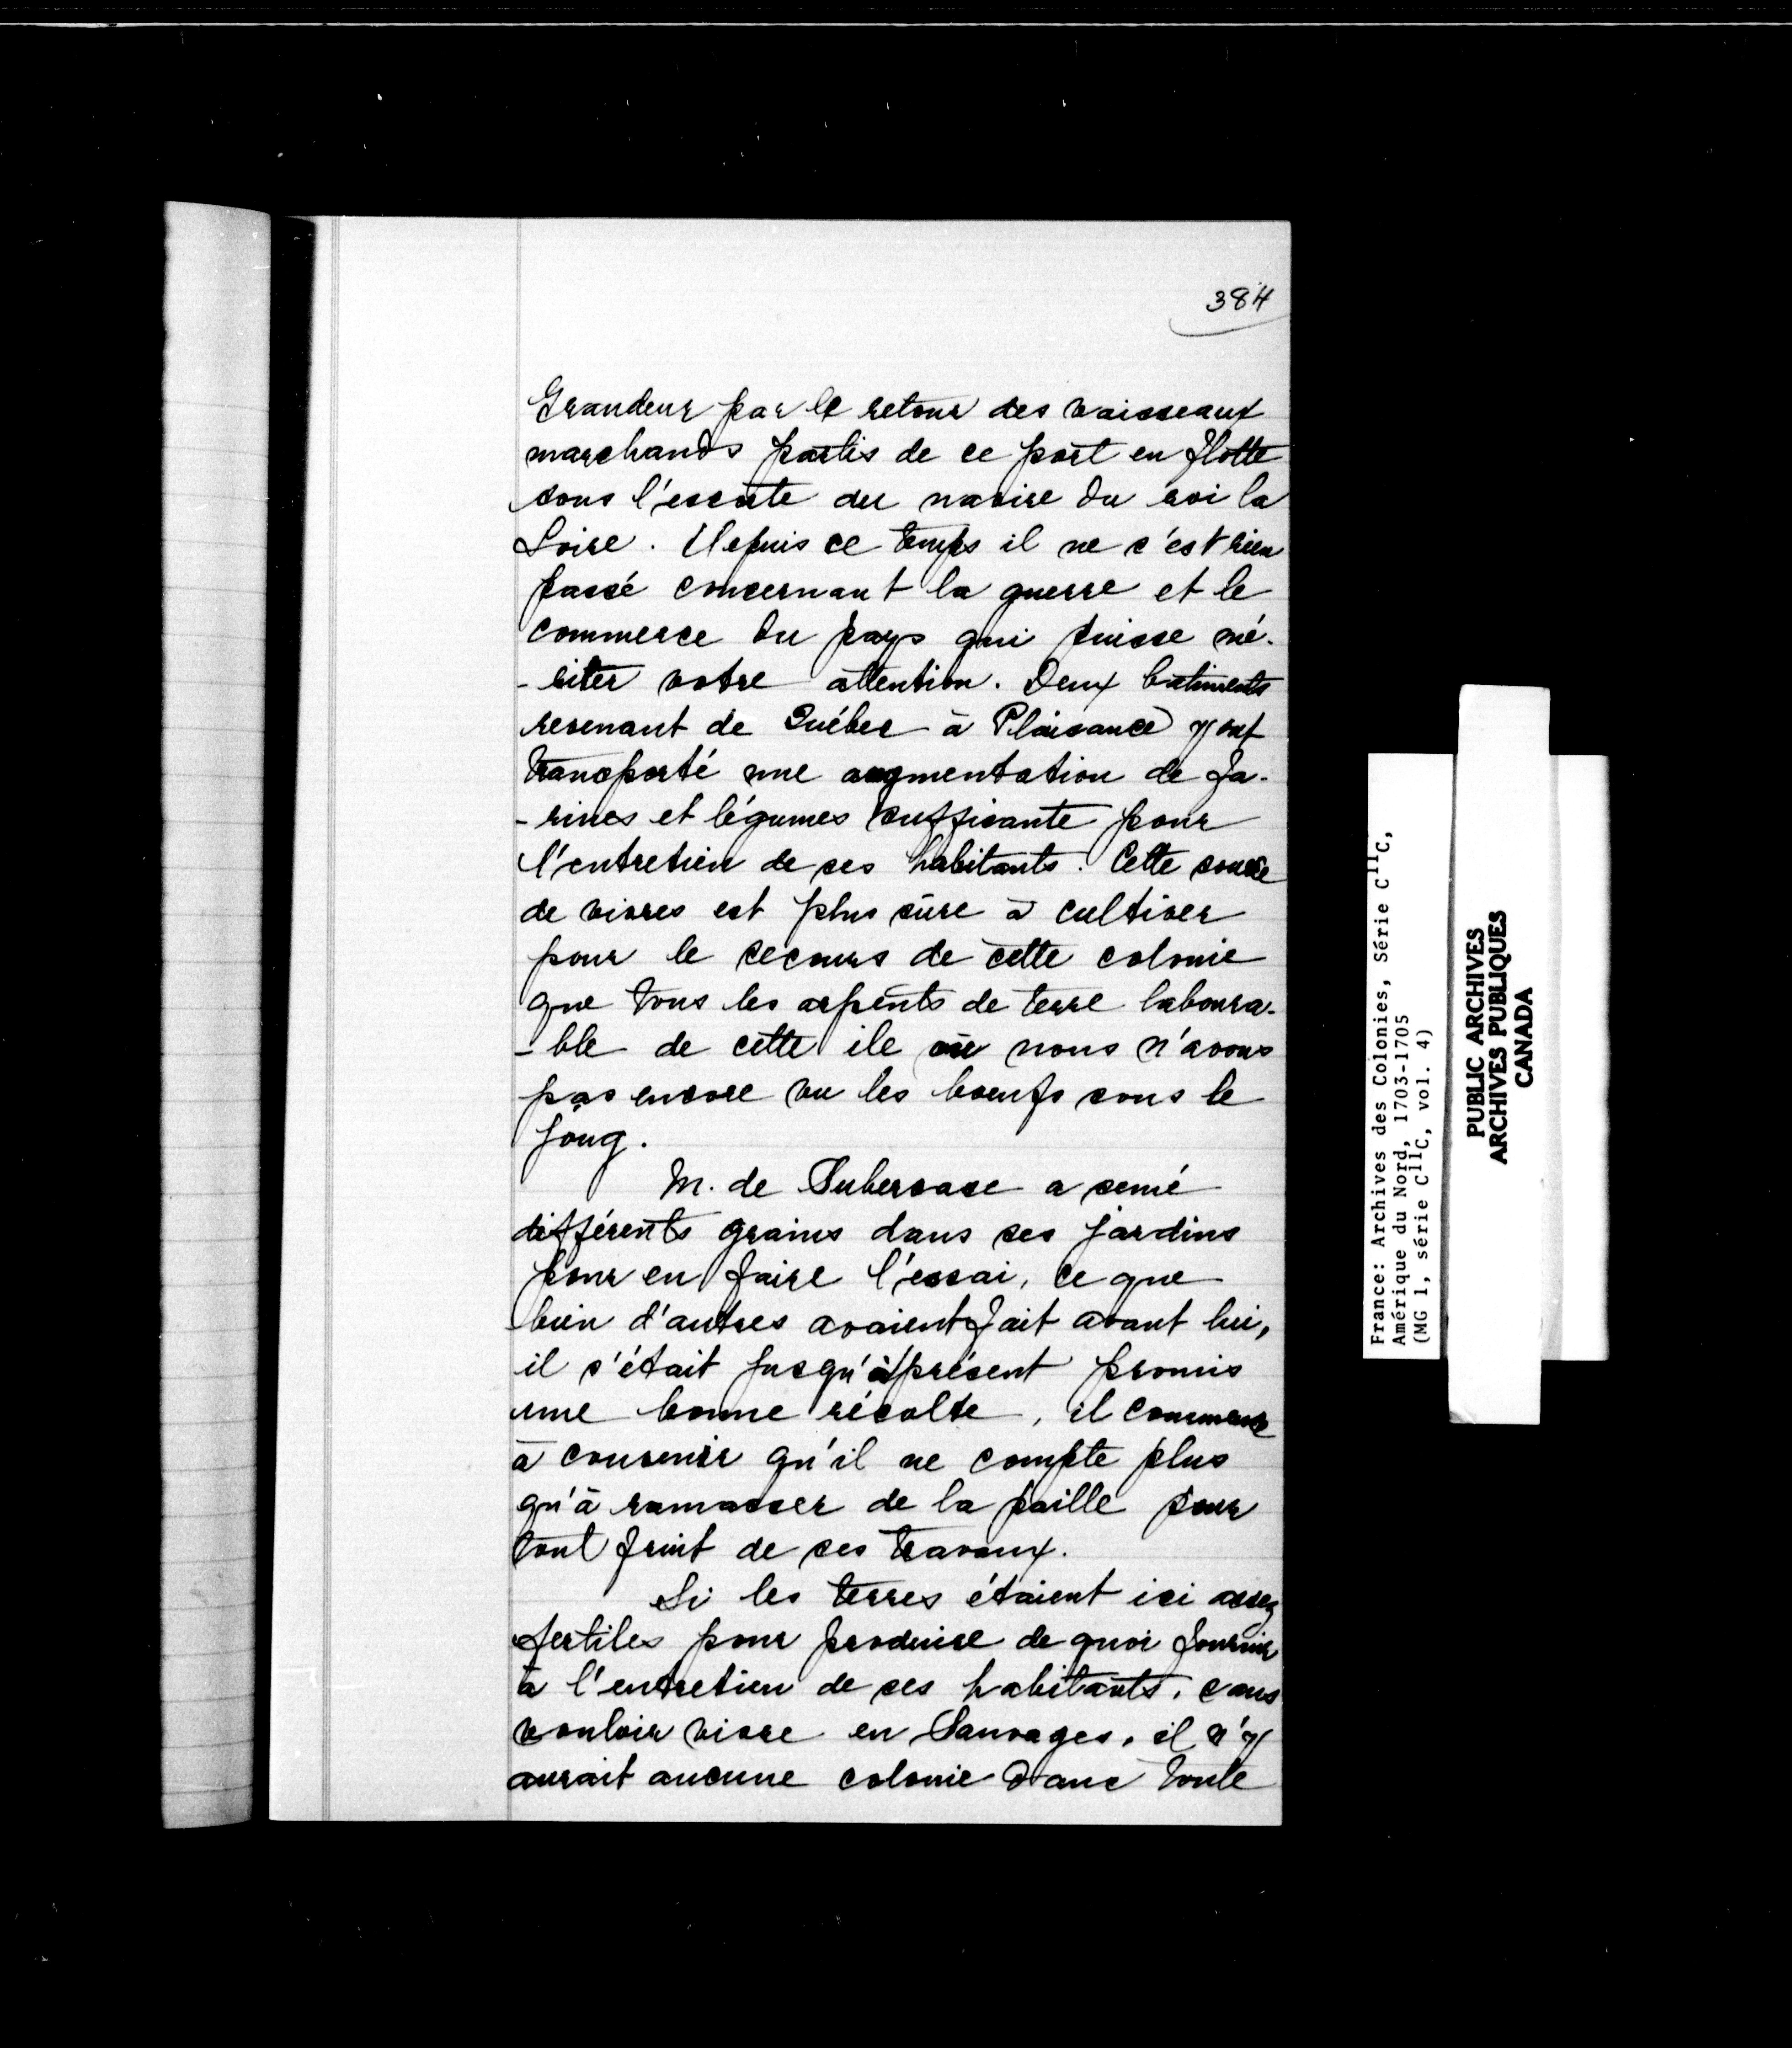 384
Grandeur par le retour des vaisseaux
marchands partis de ce port en flotte
sous l'escorte du navire du roi la
Loire. Depuis ce temps il ne s'est rien
passé concernant la guerre et le
commerce du pays qui puisse mé-
-riter votre attention. Deux batiments
revenant de Québec à Plaisance y ont
transporté une augmentation de fa-
-rines et légumes suffisante pour
l'entretien de ses habitants. Cette source
de vivres est plus sûre à cultiver
pour le secours de cette colonie
que tous les arpents de terre laboura-
-ble de cette ile où nous n'avons
pas encore vu les boeufs sous le
joug.
M. de Subercase a semé
différents grains dans ses jardins
pour en faire l'essai, ce que
bien d'autres avaient fait avant lui,
il s'était jusqu'à présent promis
une bonne récolte, il commence
à convenir qu'il ne compte plus
qu'à ramasser de la paille pour
tout fruit de ses travaux.
Si les terres étaient ici assez
fertiles pour produire de quoi fournir
à l'entretien de ses habitants, sans
vouloir vivre en Sauvages, il n'y
aurait aucune colonie dans toute
France: Archives des Colonies, Série C11C,
Amérique du Nord, 1703-1705
(MG 1, série C11C, vol. 4)
PUBLIC ARCHIVES
ARCHIVES PUBLIQUES
CANADA